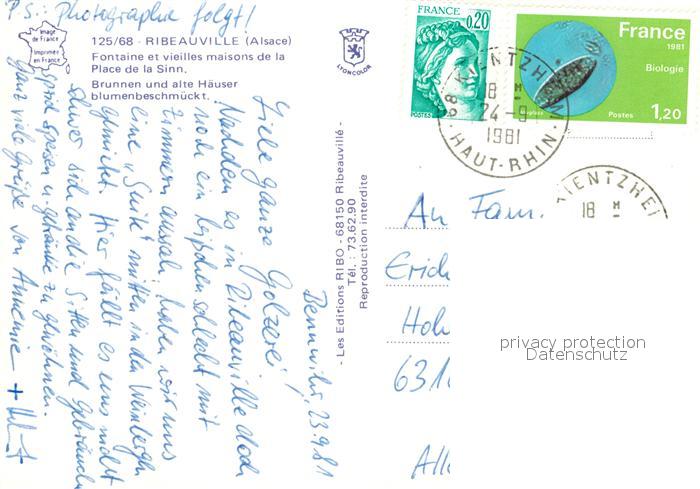 P.S.: Photographie folgt!
Image
de France
Imprimée
en France
125/68 - RIBEAUVILLE (Alsace)
Fontaine et vieilles maisons de la
Place de la Sinn.
Brunnen und alte Häuser
blumenbeschmückt.
LYONCOLOR
Bennwihr, 23.9.81
Liebe ganze Golzerei!
Nachdem es in Ribeauville doch
noch ein bißchen schlecht mit
Zimmern aussah, haben wir uns
eine "Suite" mitten in den Weinbergen
gemietet. Hier fällt es uns nicht
schwer sich an die Sitten und Gebräuche
sprich Speisen u. Getränke zu gewöhnen.
Ganz viele Grüße von Annemie +
- Les Editions RIBO - 68150 Ribeauvillé -
Tél. : 73.62.90
Reproduction interdite
FRANCE
0,20
POSTES
France
1981
Biologie
Postes 1,20
68 KIENTZHEIM
18 H
24-9
1981
HAUT-RHIN
KIENTZHEI
18 H
An Fam.
Erich
Hoh
631
All
privacy protection
Datenschutz